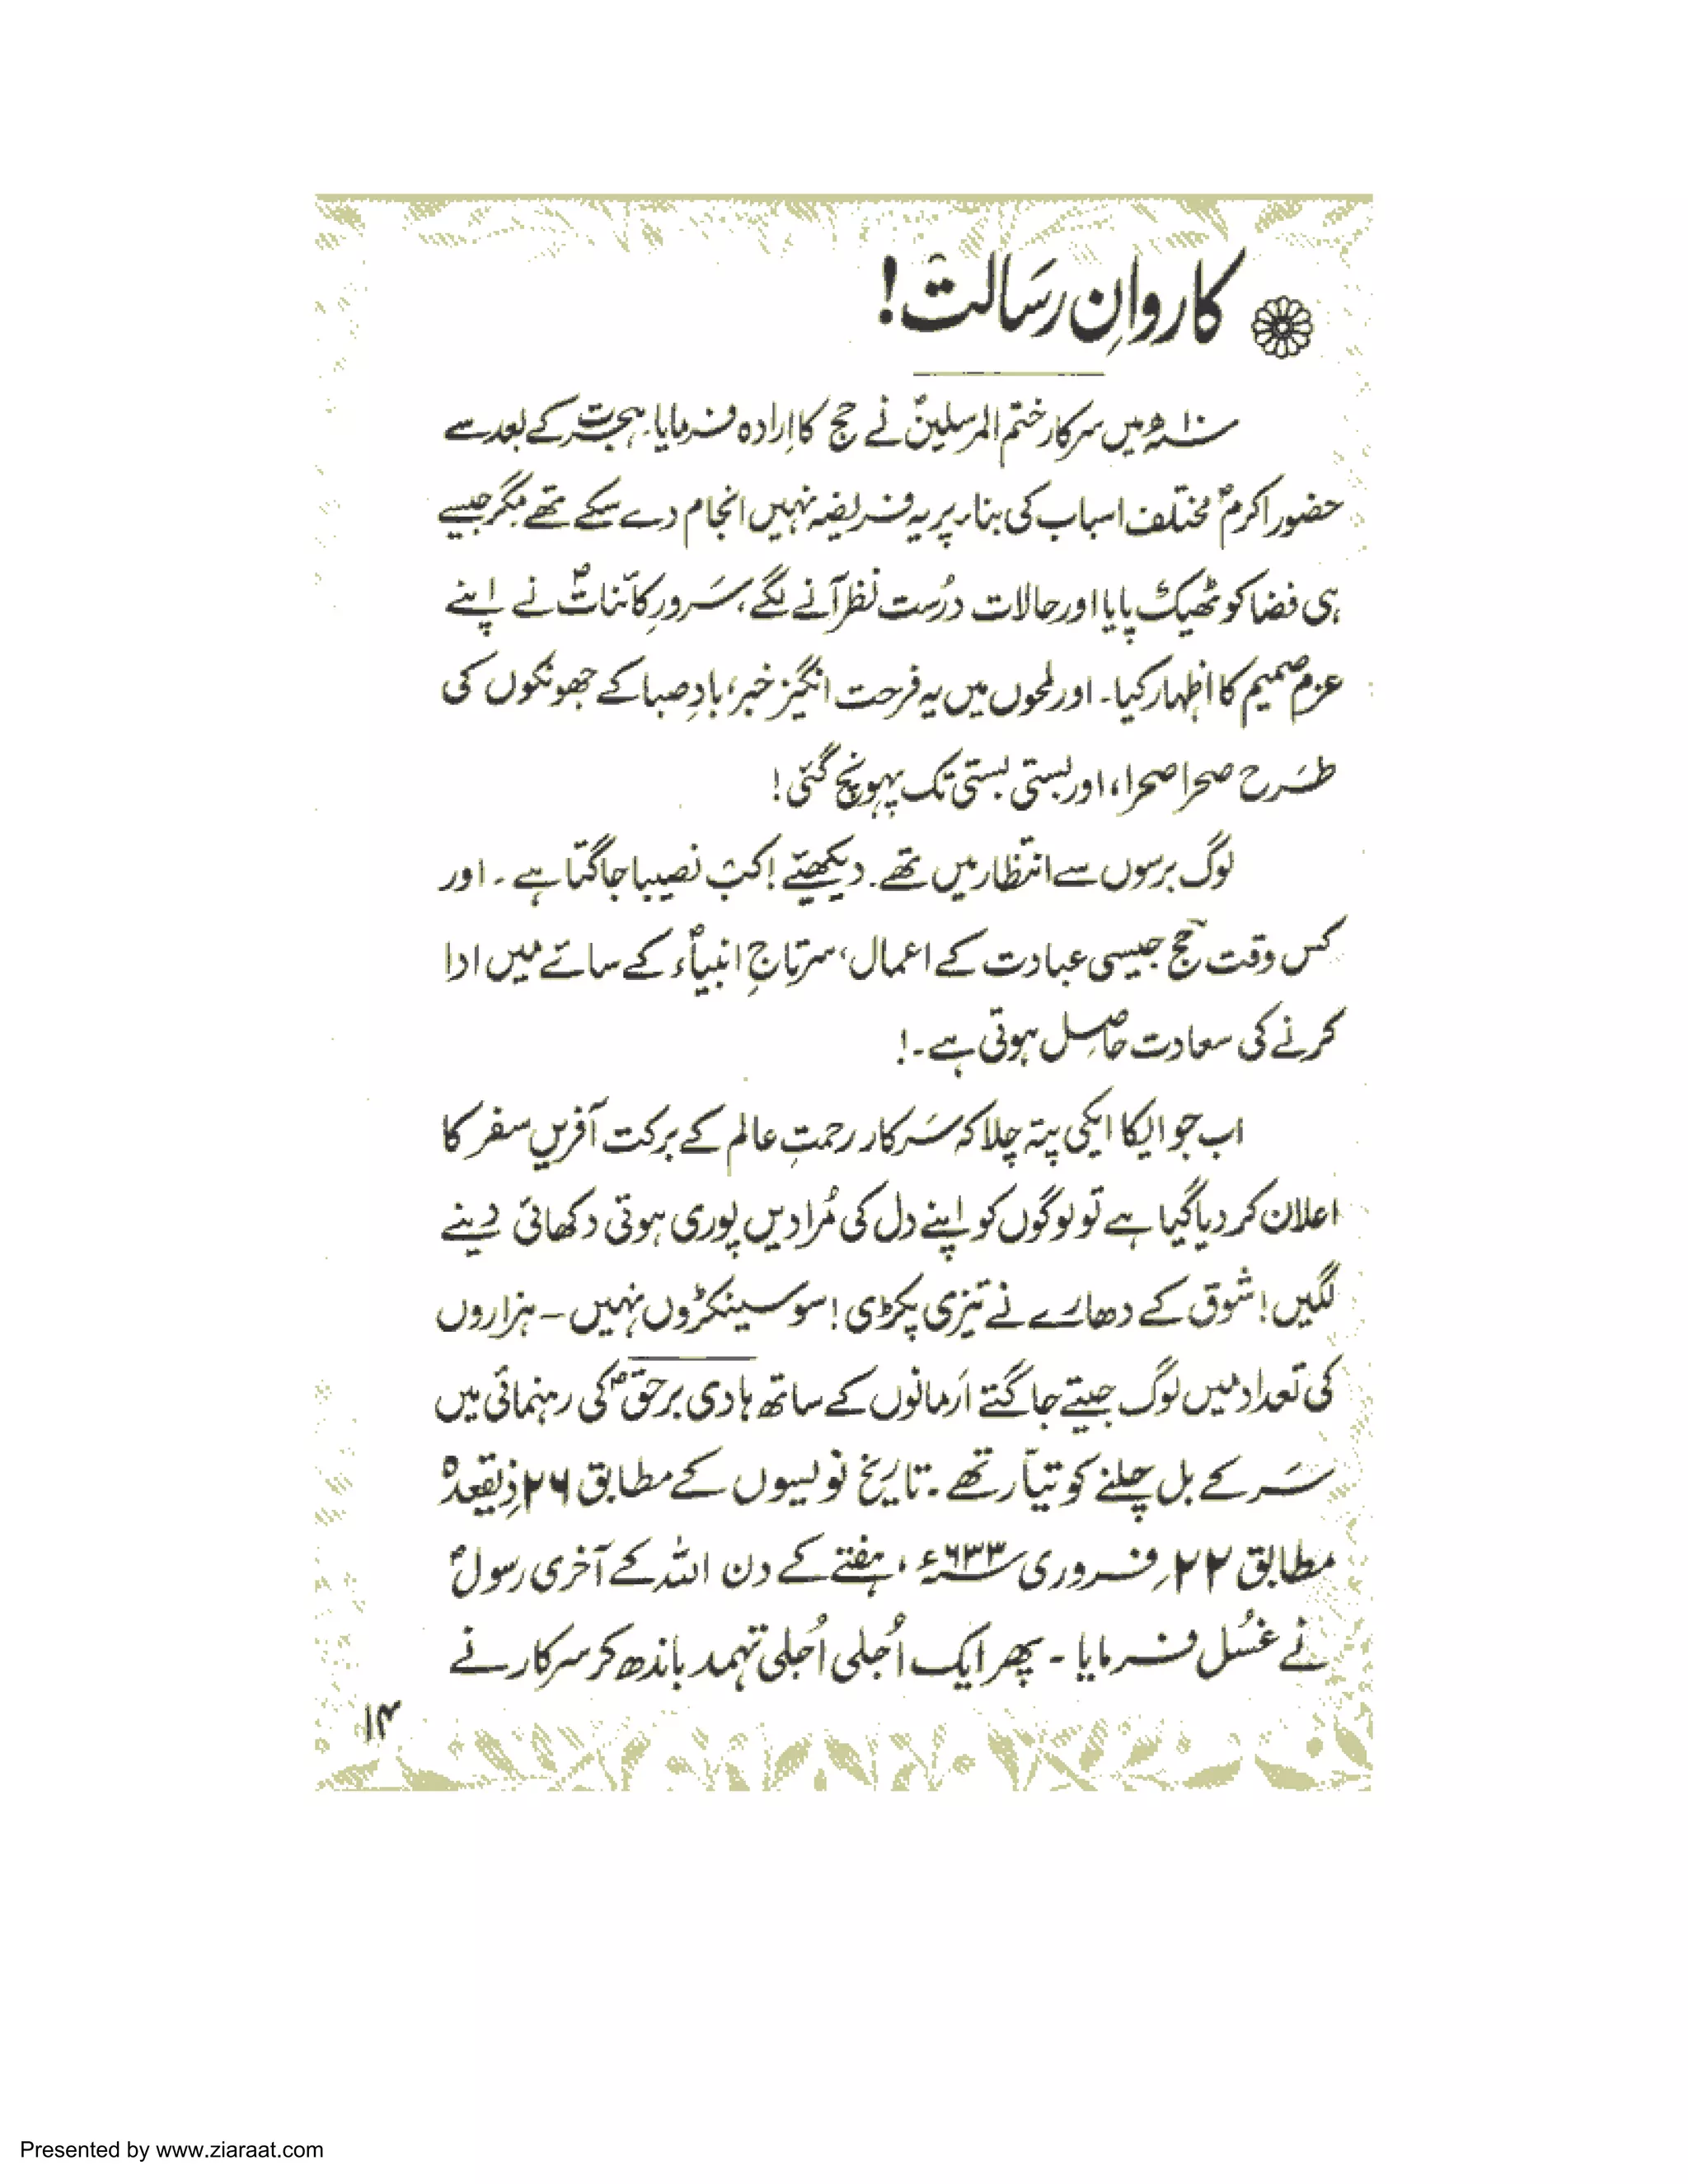 کاروانِ رسَالتؐ!
سنہ ۱۰ھ میں سرکار ختم المرسلینؐ نے حج کا اِرادہ فرمایا۔ ہجرت کے بعد سے
حضور اکرمؐ مختلف اسباب کی بناء پر یہ فریضہ نہیں انجام دے سکے تھے مگر جیسے
ہی فضا کو ٹھیک پایا اور حالات درُست نظر آنے لگے، سَرورِ کائناتؐ نے اپنے
عزمِ صمیم کا اظہار کیا۔ اور لمحوں میں یہ فرحت انگیز خبر، بادِ صبا کے جھونکوں کی
طرَح صحرا صحرا، اور بستی بستی تک پہونچ گئی!
لوگ برسوں سے انتظار میں تھے۔ دیکھیئے! کب نصیبا جاگتا ہے۔ اور
کس وقت حج جیسی عبادت کے اعمال، سرتاجِ انبیاءؐ کے سائے میں ادا
کرنے کی سعادت حاصِل ہوتی ہے۔!
اب جو ایکا ایکی پتہ چلا کہ سَرکار رحمتِ عالم کے برکت آفریں سفر کا
اعلان کر دیا گیا ہے تو لوگوں کو اپنے دل کی مُرادیں پوری ہوتی دکھائی دینے
لگیں! شوق کے دھارے نے تیزی پکڑی! سو سینکڑوں نہیں – ہزاروں
کی تعداد میں لوگ جیتے جاگتے اَرمانوں کے ساتھ ہادی برحقؐ کی رہنمائی میں
سَر کے بل چلنے کو تیاّر تھے۔ تاریخ نویسوں کے مطابق ۲۶ ذِیقعدہ
مطابق ۲۲؍ فروری سنہ ۶۳۳ء، ہفتے کے دن اللہ کے آخری رسولؐ
نے غسُل فرمایا ۔ پھر ایک اُجلی اُجلی تہمد باندھ کر سرکار نے
۱۴
Presented by www.ziaraat.com